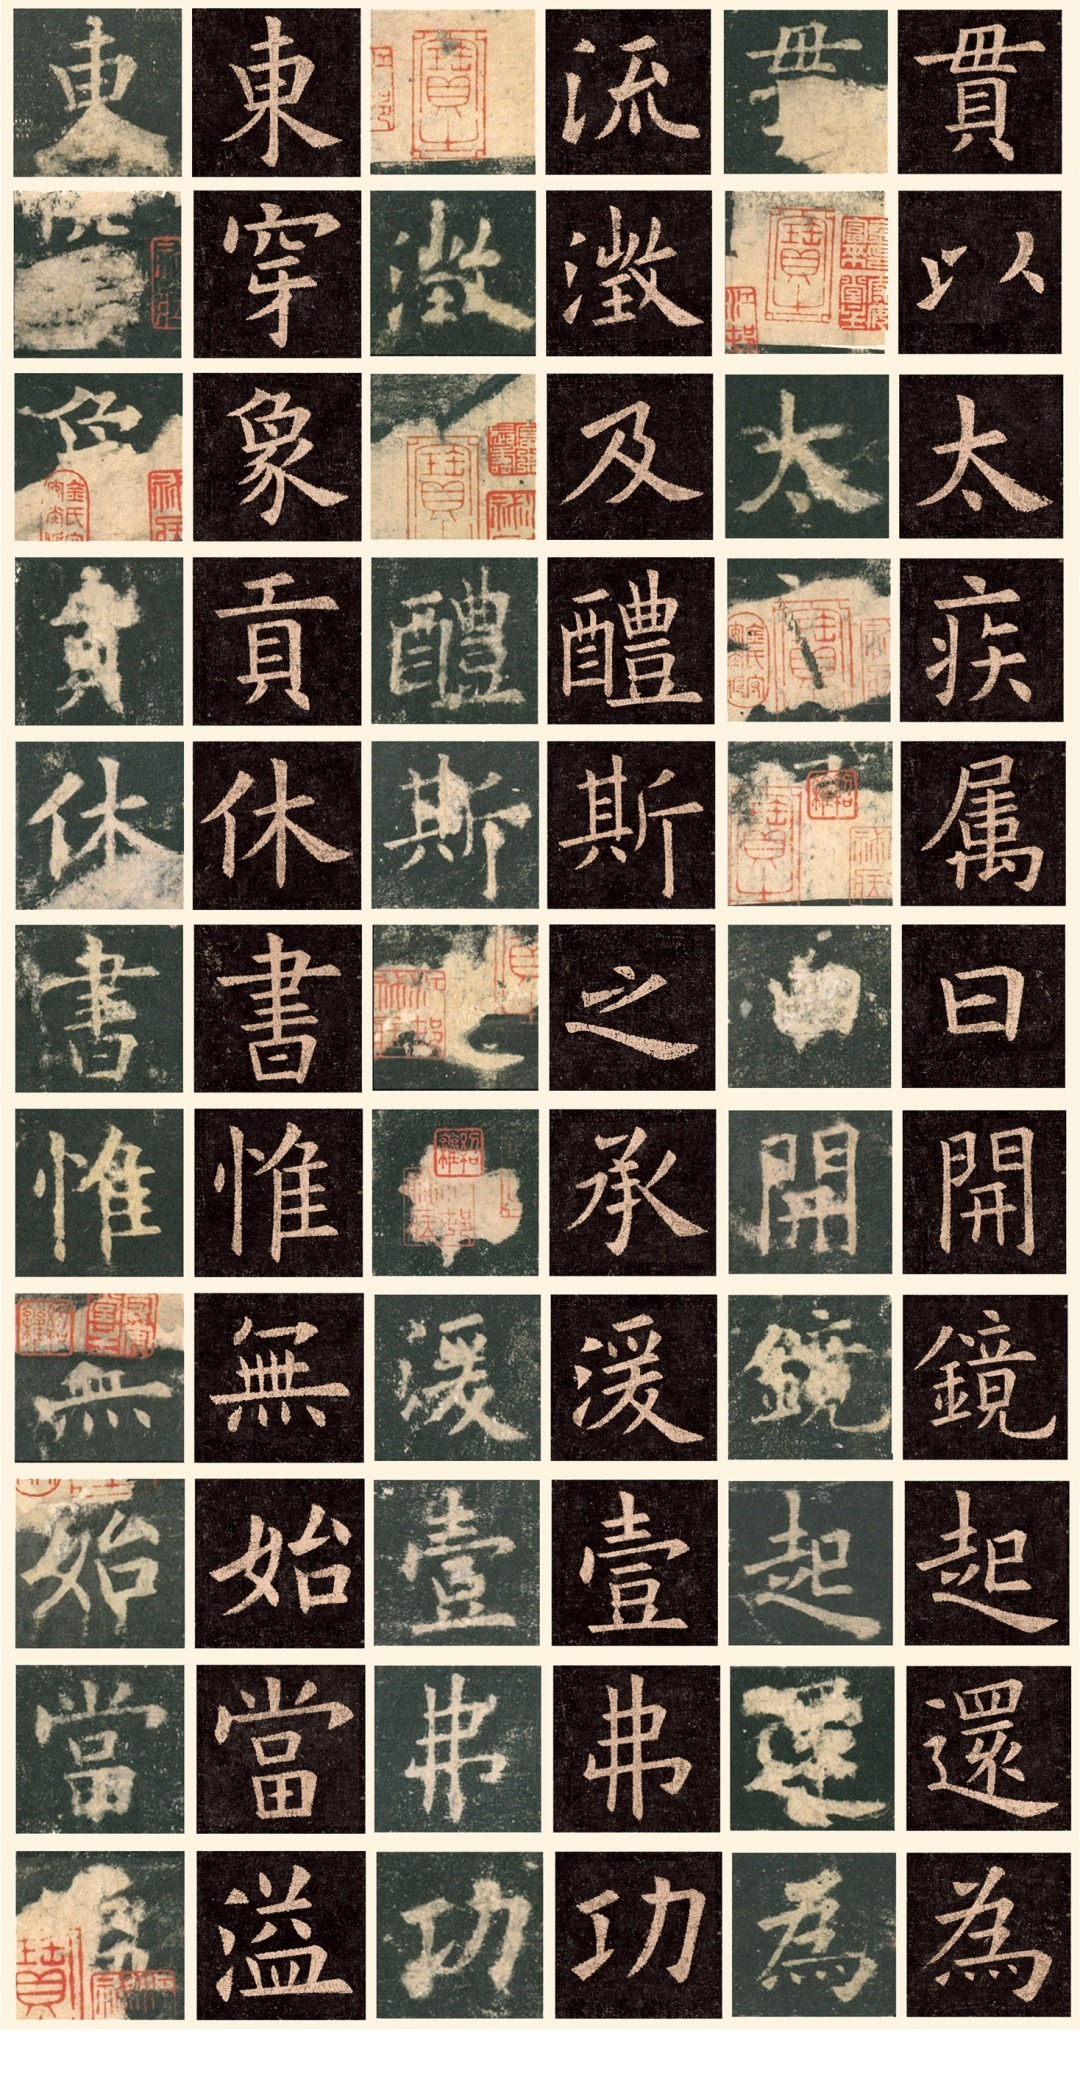 東 東 流 貫
穿 澂 澂 以
象 及 太 太
貢 貢 醴 醴 疾
休 休 斯 斯 属
書 書 之 曰
惟 惟 承 開 開
無 無 湲 湲 鏡 鏡
始 始 壹 壹 起 起
當 當 弗 弗 還
溢 功 功 為 為